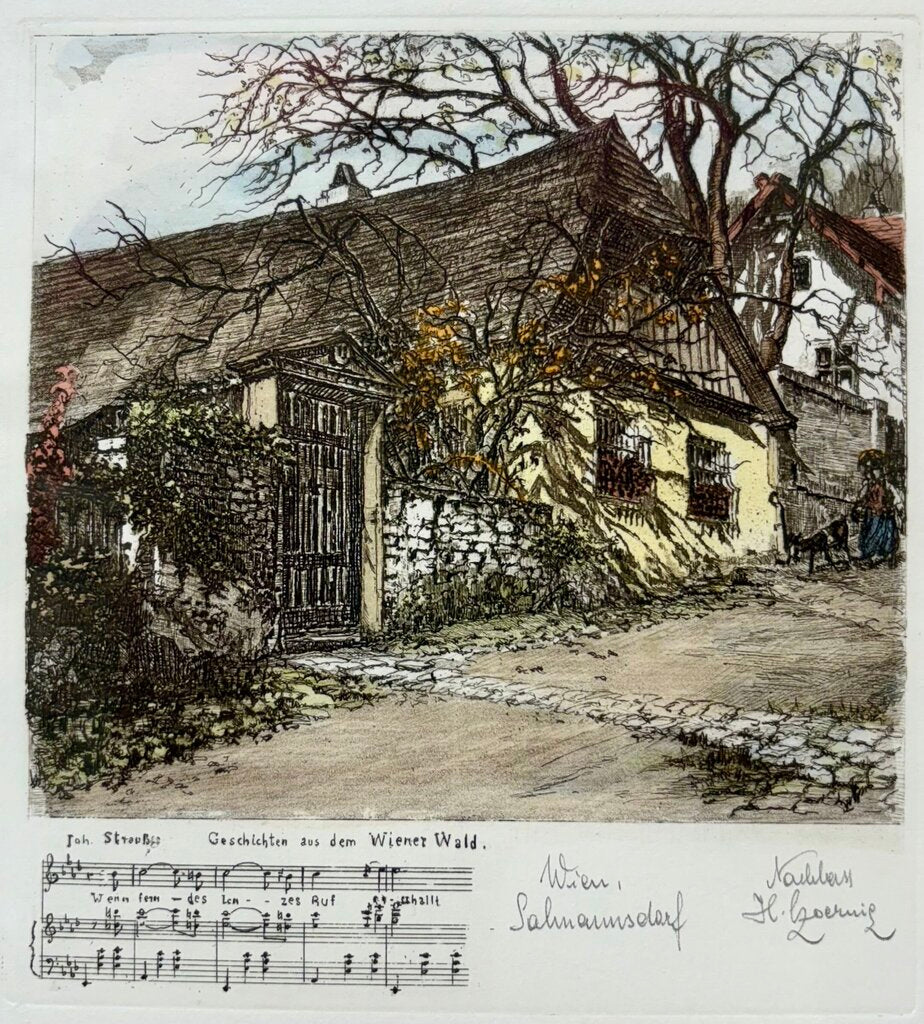 Joh. Strauß
Geschichten aus dem Wiener Wald.
Wenn fern - des Len - - zes Ruf erschallt
Wien,
Salmannsdorf
H.